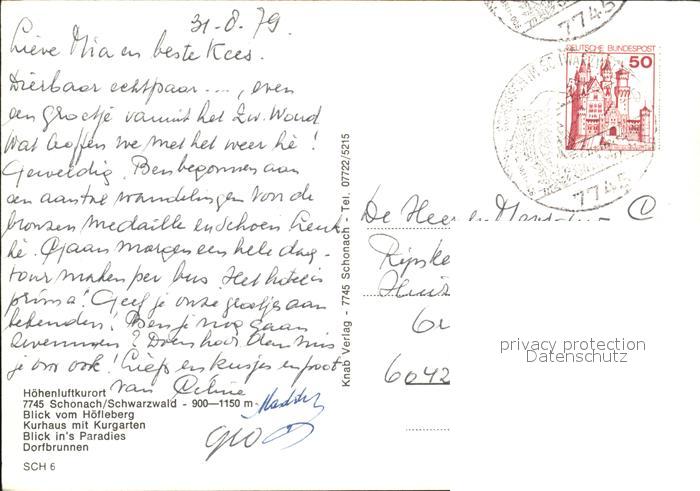 31-8-79.
Lieve Mia en beste Kees.
Dierbaar echtpaar ...., even
een groetje vanuit het Zw. Woud
Wat boffen we met het weer hè!
Geweldig. Ben begonnen aan
een aantal wandelingen voor de
bronzen medaille en schoen
hè. Gaan morgen een hele dag-
tour maken per bus. Het hotel is
prima! Geef je onze groetjes aan
bekenden! Ben je nog gaan
? Doen hoor, dan
je ook! Liefs en kusjes en groet
van
Höhenluftkurort
7745 Schonach/Schwarzwald - 900—1150 m-
Blick vom Höfleberg
Kurhaus mit Kurgarten
Blick in's Paradies
Dorfbrunnen
SCH 6
Knab Verlag - 7745 Schonach - Tel. 07722/5215
7745
DEUTSCHE BUNDESPOST
50
7745
De Heer en C
6042
privacy protection
Datenschutz